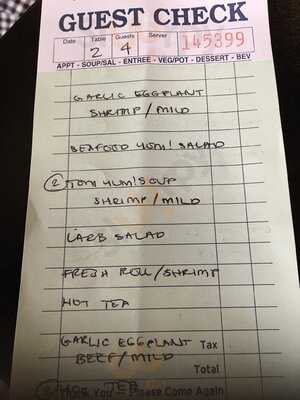 GUEST CHECK
Date Table Guests Server
2 4 145399
APPT - SOUP/SAL - ENTREE - VEG/POT - DESSERT - BEV
GARLIC EGGPLANT
SHRIMP/MILD
SEAFOOD YUM! SALAD
2 TOM YUM! SOUP
SHRIMP/MILD
LARB SALAD
FRESH ROLL/SHRIMP
HOT TEA
GARLIC EGGPLANT Tax
BEEF/MILD
Total
HOT TEA
Thank You Please Come Again